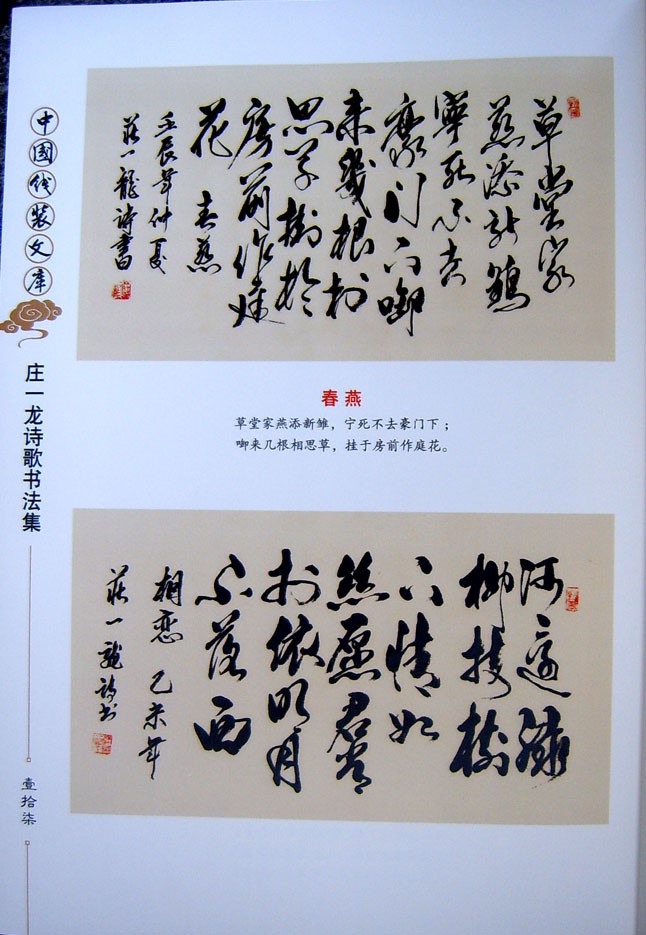 中國线装文库
庄一龙诗歌书法集
壹拾柒
草堂家
燕添新鶵
寧死不去
豪门下啣
来幾根相
思草掛於
房前作庭
花 春燕
壬辰年仲夏
莊一龍诗書
春燕
草堂家燕添新雏，宁死不去豪门下；
啣来几根相思草，挂于房前作庭花。
河邊绿
柳樹
下情如
絲愿君常
相依明月
不落西
相恋 乙未年
莊一龍詩书